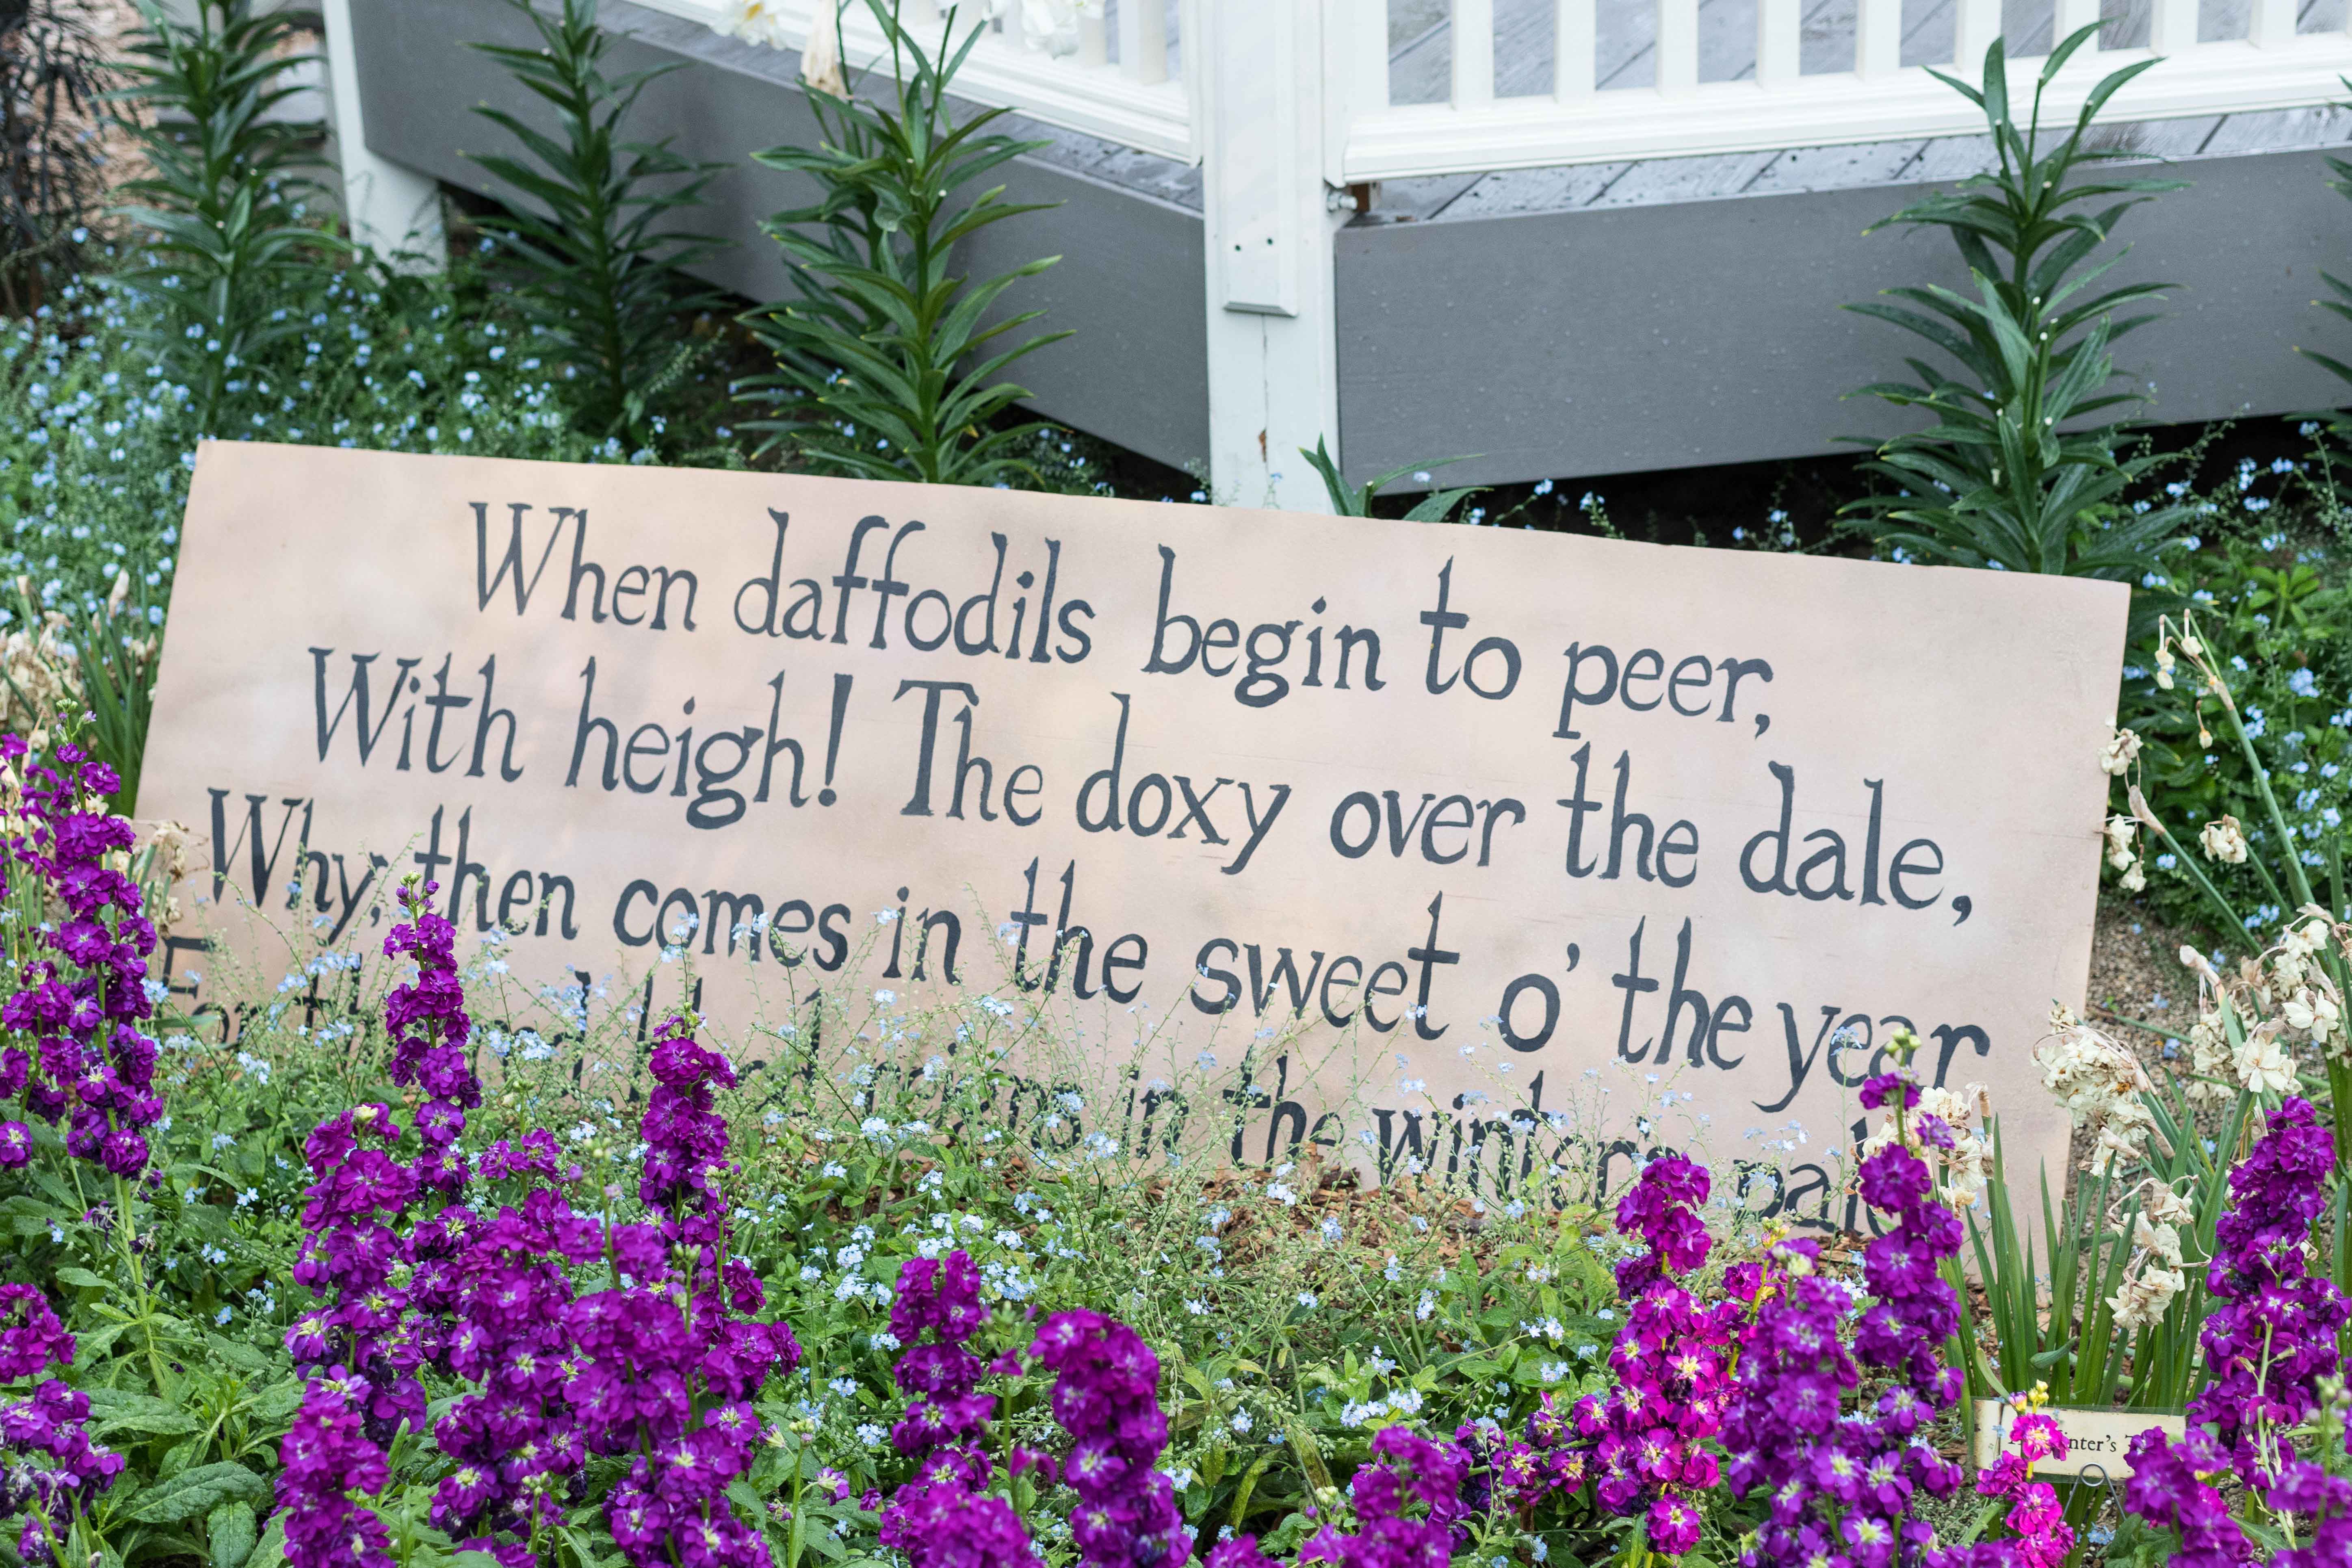 When daffodils begin to peer,
With heigh! The doxy over the dale,
Why, then comes in the sweet o' the year
For the red blood reigns in the winter's pale
Winter's